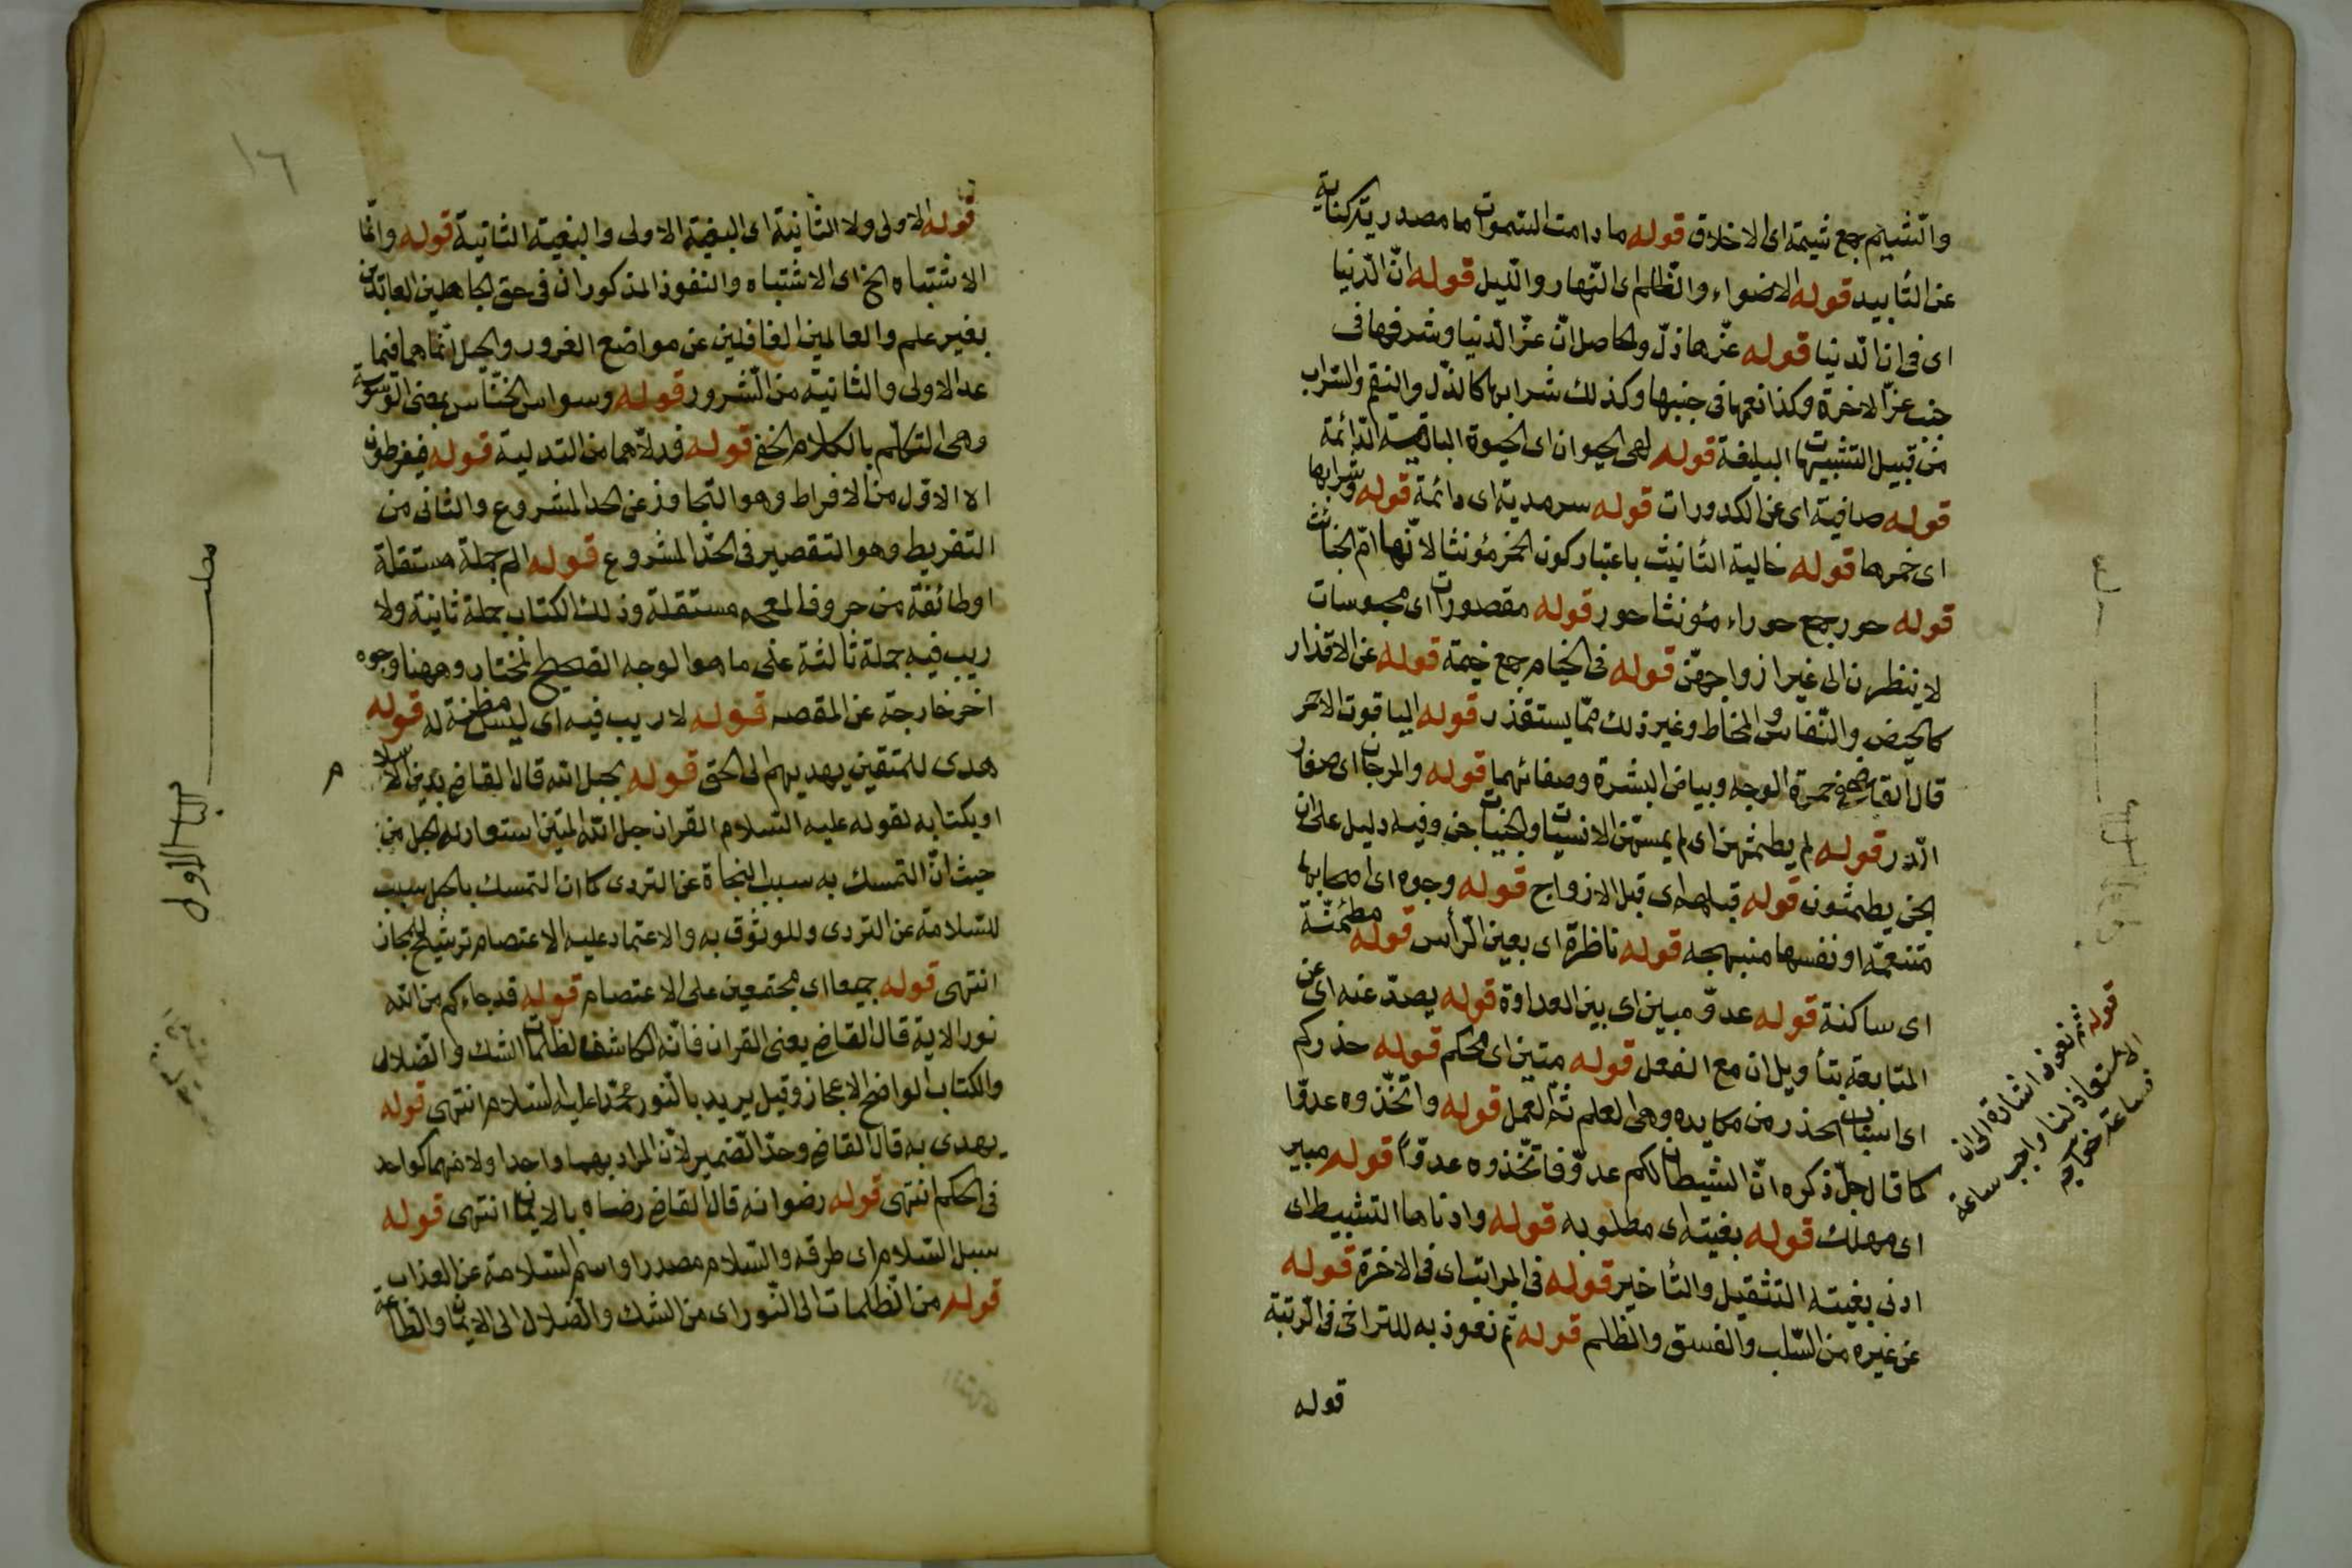 والشيم جمع شيمة اى الاخلاق قوله ما دامت السموات ما مصدرية كناية
عن التأبيد قوله الاضواء والظلم اى النهار والليل قوله ان الدنيا
اى فى ان الدنيا قوله عزها ذل والحاصل ان عز الدنيا وشرفها فى
جنب عز الاخرة وكذا نعمها فى جنبها وكذلك شرابها كالذل والنقم والسراب
من قبيل التشبيهات البليغة قوله لهى الحيوان اى الحيوة الباقية الدائمة
قوله صافية اى عن الكدورات قوله سرمدية اى دائمة قوله وشرابها
اى خمرها قوله خالية التأنيث باعتبار كون الخمر مؤنثا لانها ام الخبائث
قوله حور جمع حوراء مؤنث احور قوله مقصورات اى محبوسات
لا ينظرن الى غير ازواجهن قوله فى الخيام جمع خيمة قوله عن الاقذار
كالحيض والنفاس والمخاط وغير ذلك مما يستقذر قوله الياقوت الاحمر
قال القاضى فى حمرة الوجه وبياض البشرة وصفائهما قوله والمرجان اى صغار
الدر قوله لم يطمثهن اى لم يمسهن الانسيات انس والجنيات جن وفيه دليل على ان
الجن يطمثون قوله قبلهم اى قبل الازواج قوله وجوه اى اصحابها
متنعمة او نفسها منبهجه قوله ناظرة اى بعين الرأس قوله مطمئنة
اى ساكنة قوله عدو مبين اى بين العداوة قوله يصد عنه اى عن
المتابعة بتأويل ان مع الفعل قوله متين اى محكم قوله حذركم
اى اسباب الحذر من مكايده وهى العلم ثم العمل قوله واتخذوه عدوا
كما قال جل ذكره ان الشيطان لكم عدو فاتخذوه عدوا قوله مبير
اى مهلك قوله بغيته اى مطلوبه قوله وادناها التثبيط اى
ادنى بغيته التثقيل والتأخير قوله فى المراتب اى فى الاخرة قوله
عن غيره من السلب والفسق والظلم قوله ثم نعوذ به للتراخى فى الرتبة
قوله
قوله ثم نعوذ اشارة الى ان
الاستعاذ لنا واجب ساعة
فساعة
١٦
قوله الاولى ولا الثانية اى البغية الاولى والبغية الثانية قوله وانما
الاشتباه الخ اى الاشتباه والنفوذ المذكوران فى حق الجاهلين العابدين
بغير علم والعالمين الغافلين عن مواضع الغرور والحيل انما هما فيما
عدا الاولى والثانية من الشرور قوله وسواس الخناس بمعنى الوسوسة
وهى التكلم بالكلام الخفى قوله فدلاهما من التدلية قوله فيفرطون
الاول من الافراط وهو التجاوز عن الحد المشروع والثانى من
التفريط وهو التقصير فى الحد المشروع قوله الم جملة مستقلة
او طائفة من حروف المعجم مستقلة وذلك الكتاب جملة ثانية ولا
ريب فيه جملة ثالثة على ما هو الوجه الصحيح المختار وههنا وجوه
اخر خارجة عن المقصد قوله لا ريب فيه اى ليس مظنة له قوله
هدى للمتقين يهديهم الى الحق قوله بحبل الله قال القاضى بدين الاسلام
او بكتابه لقوله عليه السلام القران حبل الله المتين استعار له الحبل من
حيث ان التمسك به سبب النجاة عن التردى كما ان التمسك بالحبل سبب
للسلامة عن التردى وللوثوق به والاعتماد عليه الاعتصام ترشيح للمجاز
انتهى قوله جميعا اى مجتمعين على الاعتصام قوله قد جاءكم من الله
نور الاية قال القاضى يعنى القران فانه الكاشف لظلمات الشك والضلال
والكتاب الواضح الاعجاز وقيل يريد بالنور محمدا عليه السلام انتهى قوله
يهدى به قال القاضى وحد الضمير لان المراد بهما واحد اولانهما كواحد
فى الحكم انتهى قوله رضوانه قال القاضى رضاه بالايمان انتهى قوله
سبل السلام اى طرقه والسلام مصدر او اسم السلامة عن العذاب
قوله من الظلمات الى النور اى من الشك والضلال الى الايمان والطاعة
مطلب
الباب الاول